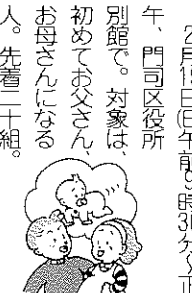 2月19日(日)午前9時30分〜正
午、門司区役所
別館で。対象は、
初めてお父さん、
お母さんになる
人。先着二十組。